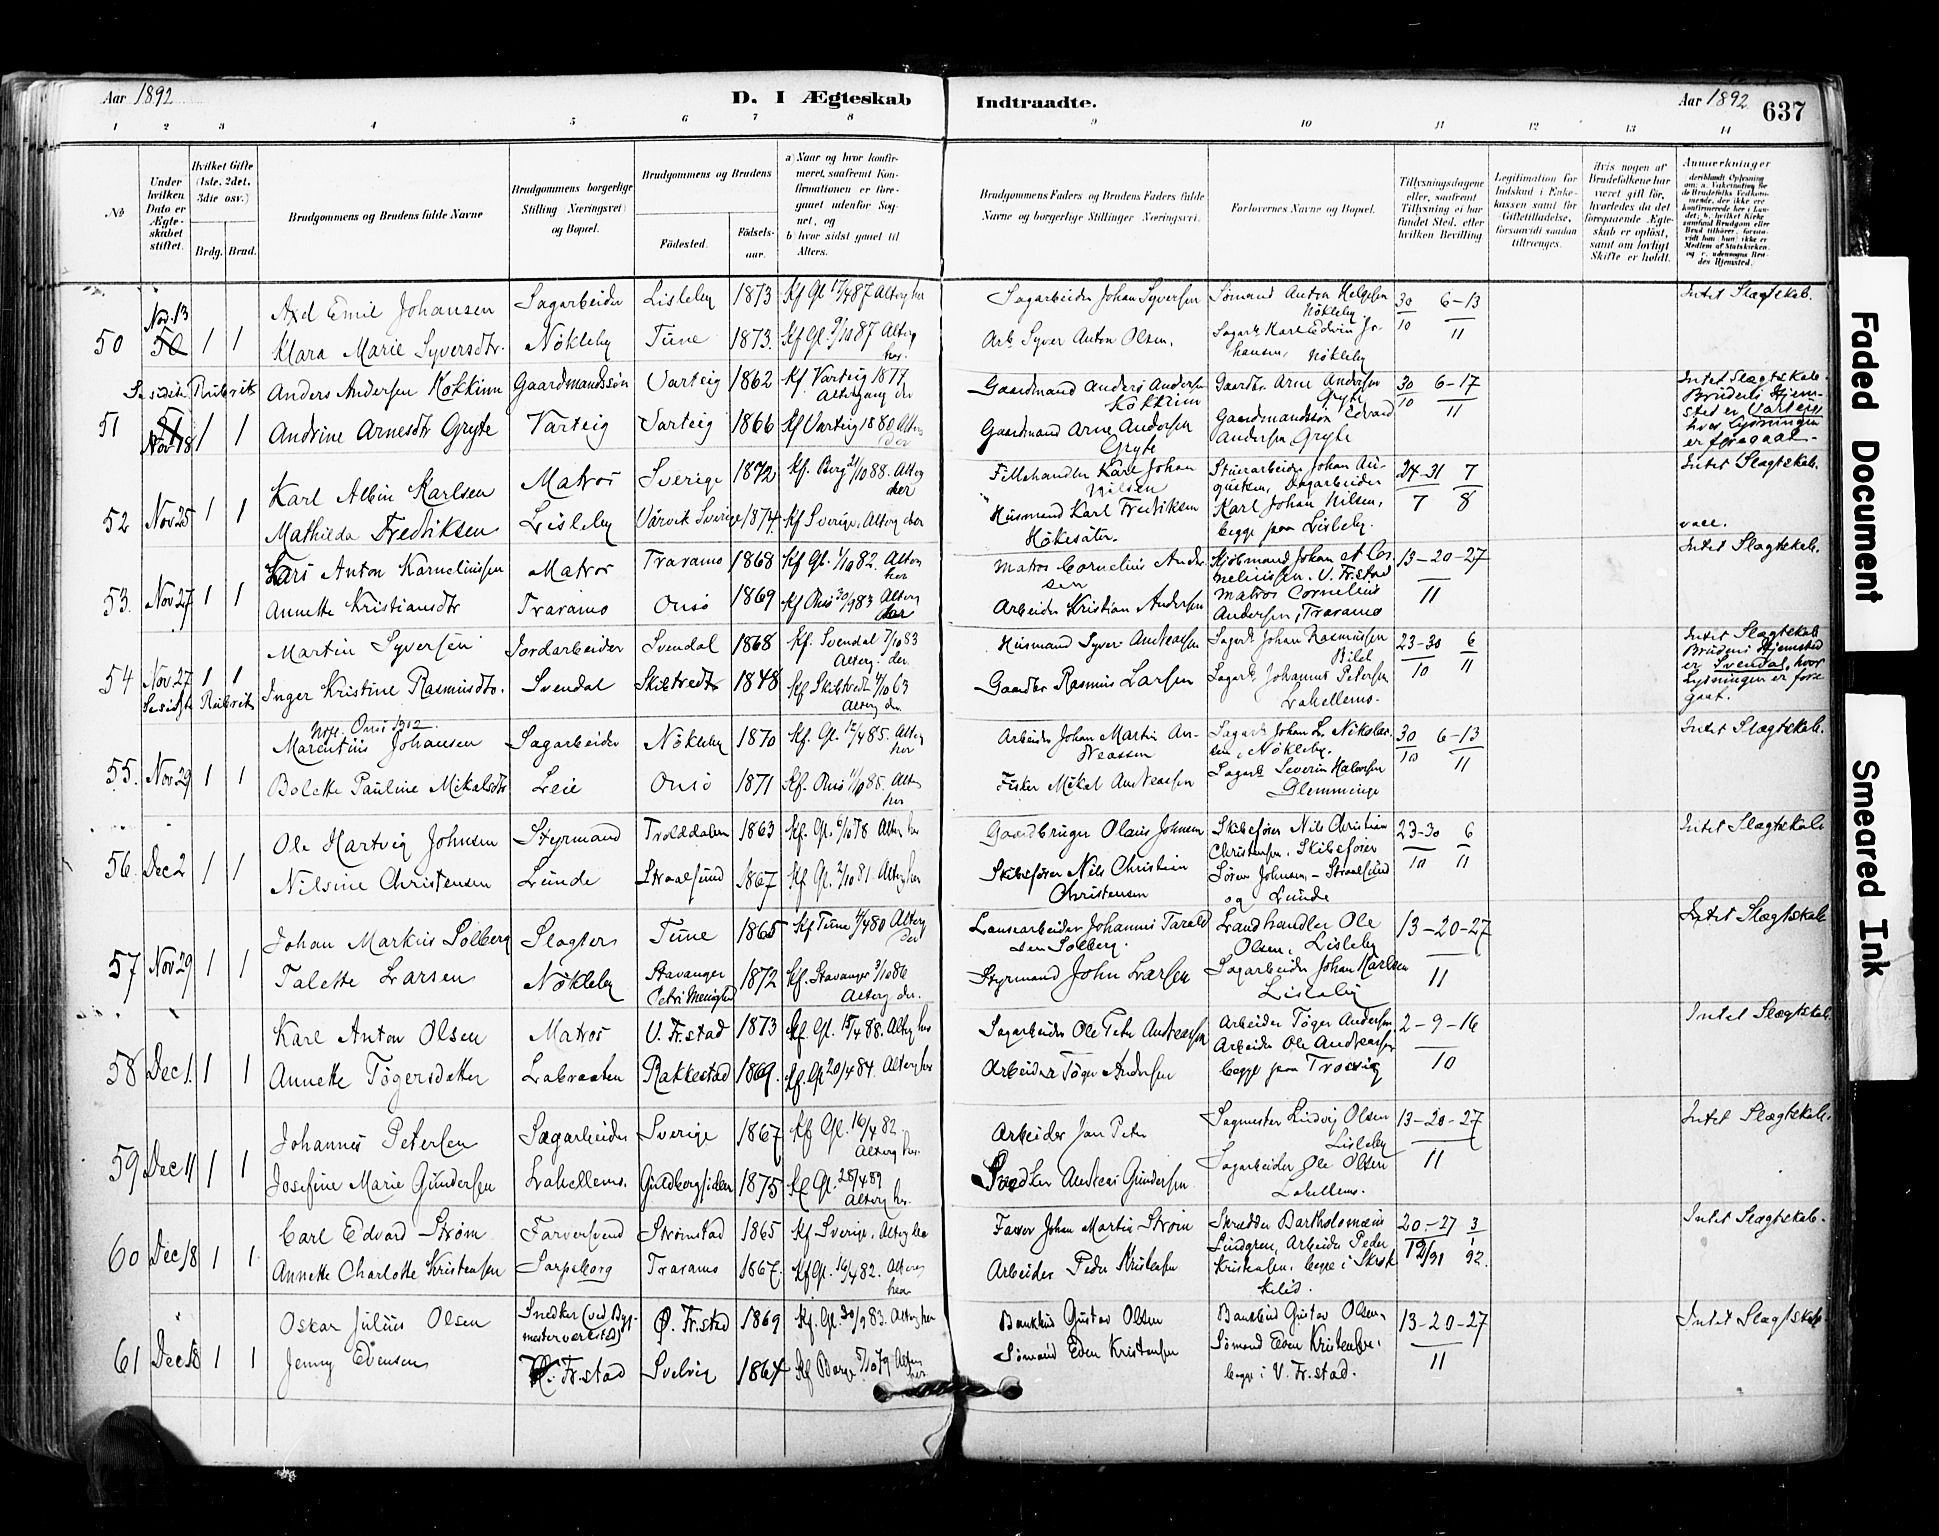 Aar 1892 D. I Ægteskab Indtraadte. Aar 1892. 637
1 2 3 4 5 6 7 8 9 10 11 12 13 14
№
Under hvilken Dato er Ægteskabet stiftet.
Hvilket Gifte (1ste, 2det, 3die osv.)
Brdg. Brud.
Brudgommens og Brudens fulde Navne
Brudgommens borgerlige Stilling (Næringsvei) og Bopæl.
Brudgommens og Brudens
Födested. Födselsaar.
a) Naar og hvor konfirmeret, samt om Konfirmationen er foregaaet udenfor Sognet, og
b) hvor sidst gaaet til Alters.
Brudgommens Faders og Brudens Faders fulde Navne og borgerlige Stillinger (Næringsvei).
Forlovernes Navne og Bopæl.
Tillysningsdagene eller, saafremt Tillysning ei har fundet Sted, efter hvilken Bevilling
Legitimation for Indskud i Enkekassen samt for Giftetilladelse, forsaavidt saadan tiltrænges.
Hvis nogen af Brudefolkene har været gift før, hvorledes da det foregaaende Ægteskab er oplöst, samt om lovligt Skifte er holdt.
Anmærkninger
50 Nov. 13 1 1
Axel Emil Johansen Sagarbeider Lisleby 1873 Kf Gl. 17/4 87 Alterg her
Klara Marie Syversdtr. Nökleby Tune 1873. Kf Gl. 9/10 87 Alterg her.
Sagarbeider Johan Syversen
Arb. Syver Anton Olsen.
Sömand Anton Helgesen Nökleby
Sagarb. Karl Edvin Johansen, Nökleby
30/10 6-13/11
Intet Slægtskab.
51 Nov 18 1 1
Se sidste Rubrik
Anders Andersen Kokkinn Gaardmandssön Varteig 1862 Kf. Varteig 1877 Altergang der
Andrine Arnesdtr Gryte Varteig Varteig 1866 Kf Varteig 1880 Alterg der
Gaardmand Anders Andersen Kokkinn
Gaardmand Arne Andersen Gryte
Gaardbr. Arne Andersen Gryte
Gaardmandssön Edvard Andersen Gryte
30/10 6-17/11
Intet Slægtskab.
Brudens Hjemsted er Varteig hvor Lysningen er foregaat.
52 Nov 25 1 1
Karl Albin Karlsen Matros Sverige 1872 Kf. Berg 21/10 88. Alterg her
Mathilda Fredriksen Lisleby Värvik Sverige 1874. Kf Sverige. Alterg der
Fillehandler Karl Johan Nilsen
Husmand Karl Fredriksen Hökesäter.
Stuerarbeider Johan Augustsen, Dagarbeider
Karl Johan Nilsen,
begge paa Lisleby.
24-31/7 7/8
Intet Slægtskab.
vacc.
53. Nov 27 1 1
Lars Anton Karneliussen Matros Traramo 1868 Kf Gl. 1/10 82. Alterg her
Annette Kristiansdtr Traramo Onsö 1869 Kf Onsö 30/9 83 Alterg her
Matros Cornelius Andersen
Arbeider Kristian Andersen
Kjöbmand Johan A. Corneliussen. V. Fr.stad
Matros Cornelius Andersen, Traramo
13-20-27/11
Intet Slægtskab.
54 Nov. 27 1 1
Se sidste Rubrik
Martin Syversen Jordarbeider Svendal 1868 Kf. Svendal 7/10 83 Alterg. der.
Inger Kristine Rasmusdtr. Svendal Skibtvedt 1848 Kf Skibtvedt 4/10 63 Alterg der.
Husmand Syver Andreassen
Gaardbr Rasmus Larsen
Sagarb. Johan Rasmussen
Sagarb Johannes Petersen Lahellems.
23-30/10 6/11
Intet Slægtskab
Brudens Hjemsted er Svendal, hvor Lysningen er foregaat.
55. Nov. 29 1 1
Onsö 1902.
Marentius Johansen Sagarbeider Nökleby 1870 Kf. Gl. 12/4 85. Alterg her
Bolette Pauline Mikalsdtr Leie Onsö 1871 Kf. Onsö 11/10 85. Alterg her
Arbeider Johan Martin Andreassen
Fisker Mikal Andreassen
Sagarb Johan L. Nikolaisen, Nökleby.
Sagarb Severin Halvorsen Glemminge
30/10 6-13/11
Intet Slægtskab.
56. Dec 2 1 1
Ole Hartvig Johnsen Styrmand Trolddalen 1863 Kf. Gl. 6/10 78 Alterg her
Nilsine Christensen Lunde Straalsund 1867 Kf Gl. 2/10 81 Alterg her
Gaardbruger Olaus Johnsen
Skibsförer Nils Christian Christensen
Skibsförer Nils Christian Christensen, Skibsförer
Sören Johnsen, - Straalsund og Lunde
23-30/10 6/11
Intet Slægtskab
57 Nov 29 1 1
Johan Markus Solberg Slagter Tune 1865 Kf Tune 4/4 80 Alterg der
Talette Larsen Nökleby Stavanger Petri Menighed 1872 Kf. Stavanger 3/10 86 Alterg der.
Landsearbeider Johannes Taraldsen Solberg.
Styrmand John Larsen
Landhandler Ole Olsen, Lisleby
Sagarbeider Johan Karlsen Lisleby
13-20-27/11
Intet Slægtskab
58 Dec 1. 1 1
Karl Anton Olsen Matros V. Fr.stad 1873 Kf. Gl. 15/4 88. Alterg her
Annette Tögersdatter Labraaten Rakkestad 1869. Kf. Gl 20/4 84. Alterg her
Sagarbeider Ole Peter Andreassen
Arbeider Töger Andersen
Arbeider Töger Andersen,
Arbeider Ole Andreassen
begge paa Trosvig
2-9-16/10
Intet Slægtskab.
59 Dec 11 1 1
Johannes Petersen Sagarbeider Sverige 1867 Kf Gl. 16/4 82. Alterg her.
Josefine Marie Gundersen Lahellems. Guldbergsiden 1875 Kf Gl. 28/4 89 Alterg her.
Arbeider Jan Peter
Snedker Andreas Gundersen
Sagmester Ludvig Olsen Lisleby
Sagarbeider Ole Olsen Lahellems.
13-20-27/11
Intet Slægtskab.
60 Dec 18 1 1.
Carl Edvard Ström Farversvend Strömstad 1865 Kf Sverige. Alterg her
Annette Charlotte Kristensen Sarpsborg Traramo 1867. Kf Gl. 16/4 82. Alterg her
Farver Johan Martin Ström
Arbeider Peder Kristensen
Skrædder Bartholomæus Lindgren, Arbeider Peder Kristensen, begge i
20.-27/12 91 3/1 92.
Intet Slægtskab.
61 Dec 18 1 1
Oskar Julius Olsen Snedker (ved Bygmesterverksted) Ø. Fr.stad 1869 Kf. Gl. 30/9 83. Alterg her
Jenny Evensen V. Fr.stad Svelvig 1864 Kf Borge 5/10 79 Alterg her
Bankbud Gustav Olsen
Sömand Even Kristensen
Bankbud Gustav Olsen,
Sömand Even Kristensen.
begge i V. Fr.stad.
13-20-27/11
Intet Slægtskab
Faded Document
Smeared Ink